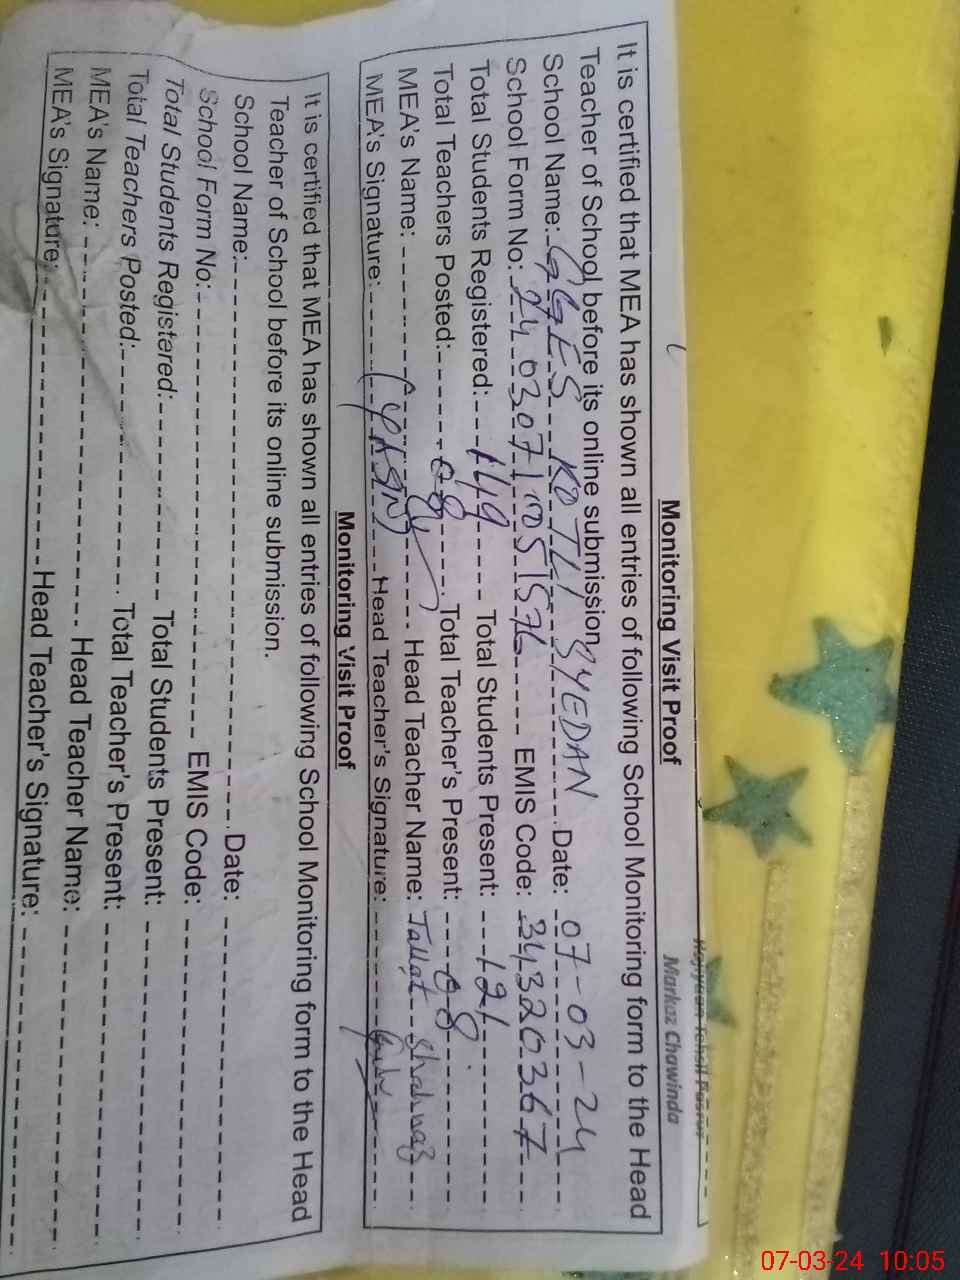 Markaz Chawinda
Monitoring Visit Proof
It is certified that MEA has shown all entries of following School Monitoring form to the Head
Teacher of School before its online submission.
School Name: GGES KOTLI SYEDAN Date: 07-03-24
School Form No: 24030710051576 EMIS Code: 34320367
Total Students Registered: 149 Total Students Present: 121
Total Teachers Posted: 08 Total Teacher's Present: 08
MEA's Name: Head Teacher Name: Tallat Shahnaz
MEA's Signature: (YASIN) Head Teacher's Signature:
Monitoring Visit Proof
It is certified that MEA has shown all entries of following School Monitoring form to the Head
Teacher of School before its online submission.
School Name: Date:
School Form No: EMIS Code:
Total Students Registered: Total Students Present:
Total Teachers Posted: Total Teacher's Present:
MEA's Name: Head Teacher Name:
MEA's Signature: Head Teacher's Signature:
07-03-24 10:05